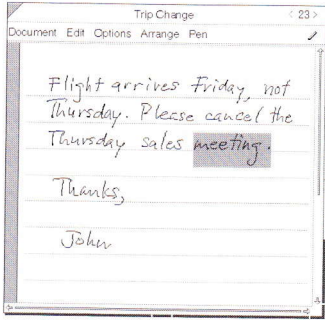 Trip Change
< 23 >
Document Edit Options Arrange Pen
Flight arrives Friday, not
Thursday. Please cancel the
Thursday sales meeting.
Thanks,
John